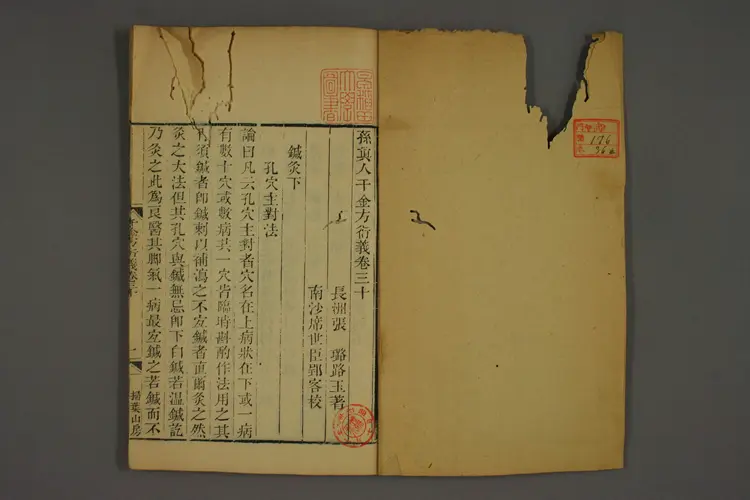 孫真人千金方衍義卷三十
長洲張　璐路玉著
南沙席世臣郢客校
鍼灸下
孔穴主對法
論曰凡云孔穴主對者穴名在上病狀在下或一病
有數十穴或數病共一穴皆臨時斟酌作法用之其
有須鍼者即鍼刺以補瀉之不宐鍼者直爾灸之然
灸之大法但其孔穴與鍼無忌即下白鍼若温鍼訖
乃灸之此爲良醫其脚氣一病最宐鍼之若鍼而不
千金方衍義卷三十
一
掃葉山房
176
36